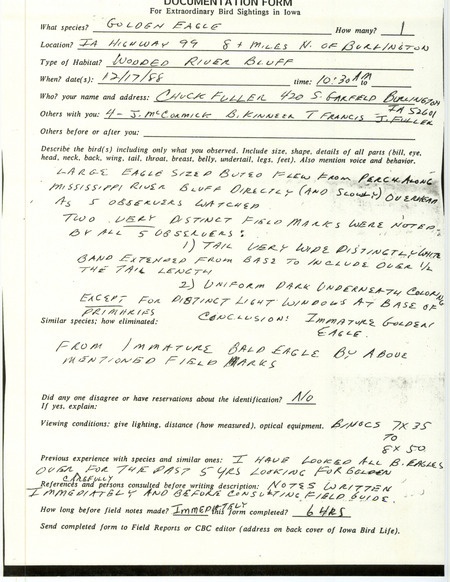 DOCUMENTATION FORM
For Extraordinary Bird Sightings in Iowa
What species? GOLDEN EAGLE How many? 1
Location? IA HIGHWAY 99 8+ MILES N. OF BURLINGTON
Type of Habitat? WOODED RIVER BLUFF
When? date(s): 12/17/88 time: 10:30 AM to
Who? your name and address: CHUCK FULLER 420 S. GARFIELD BURLINGTON
IA 52601
Others with you: 4- J. McCORMICK B. KINNEER T FRANCIS J. FULLER
Others before or after you:
Describe the bird(s) including only what you observed. Include size, shape, details of all parts (bill, eye,
head, neck, back, wing, tail, throat, breast, belly, undertail, legs, feet). Also mention voice and behavior.
LARGE EAGLE SIZED BUTEO FLEW FROM PERCH ALONG
MISSISSIPPI RIVER BLUFF DIRECTLY (AND SLOWLY) OVERHEAD
AS 5 OBSERVERS WATCHED
TWO VERY DISTINCT FIELD MARKS WERE NOTED
BY ALL 5 OBSERVERS:
1) TAIL VERY WIDE DISTINCTLY WHITE
BAND EXTENDED FROM BASE TO INCLUDE OVER 1/2
THE TAIL LENGTH
2) UNIFORM DARK UNDERNEATH COLORING
EXCEPT FOR DISTINCT LIGHT WINDOWS AT BASE OF
PRIMARIES CONCLUSION: IMMATURE GOLDEN
EAGLE.
Similar species; how eliminated:
FROM IMMATURE BALD EAGLE BY ABOVE
MENTIONED FIELD MARKS
Did any one disagree or have reservations about the identification? NO
If yes, explain:
Viewing conditions: give lighting, distance (how measured), optical equipment. BINOCS 7X35
TO
8X50
Previous experience with species and similar ones: I HAVE LOOKED ALL B. EAGLES
OVER FOR THE PAST 5 YRS LOOKING FOR GOLDEN
CAREFULLY
References and persons consulted before writing description: NOTES WRITTEN
IMMEDIATELY AND BEFORE CONSULTING FIELD GUIDE.
How long before field notes made? IMMEDIATELY this form completed? 6 HRS
Send completed form to Field Reports or CBC editor (address on back cover of Iowa Bird Life).